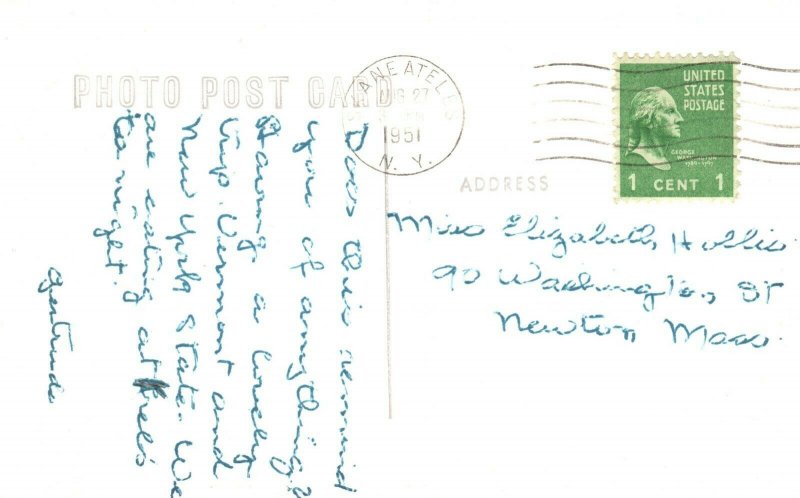 PHOTO POST CARD
SKANEATELES
AUG 27
1951
N. Y.
UNITED
STATES
POSTAGE
GEORGE
WASHINGTON
1789-1797
1 CENT 1
ADDRESS
Miss Elizabeth Hollis
90 Washington St
Newton Mass.
Does this remind
you of anything?
Having a lovely
trip. Vermont and
New York State. We
are eating at
to night.
Gertrude